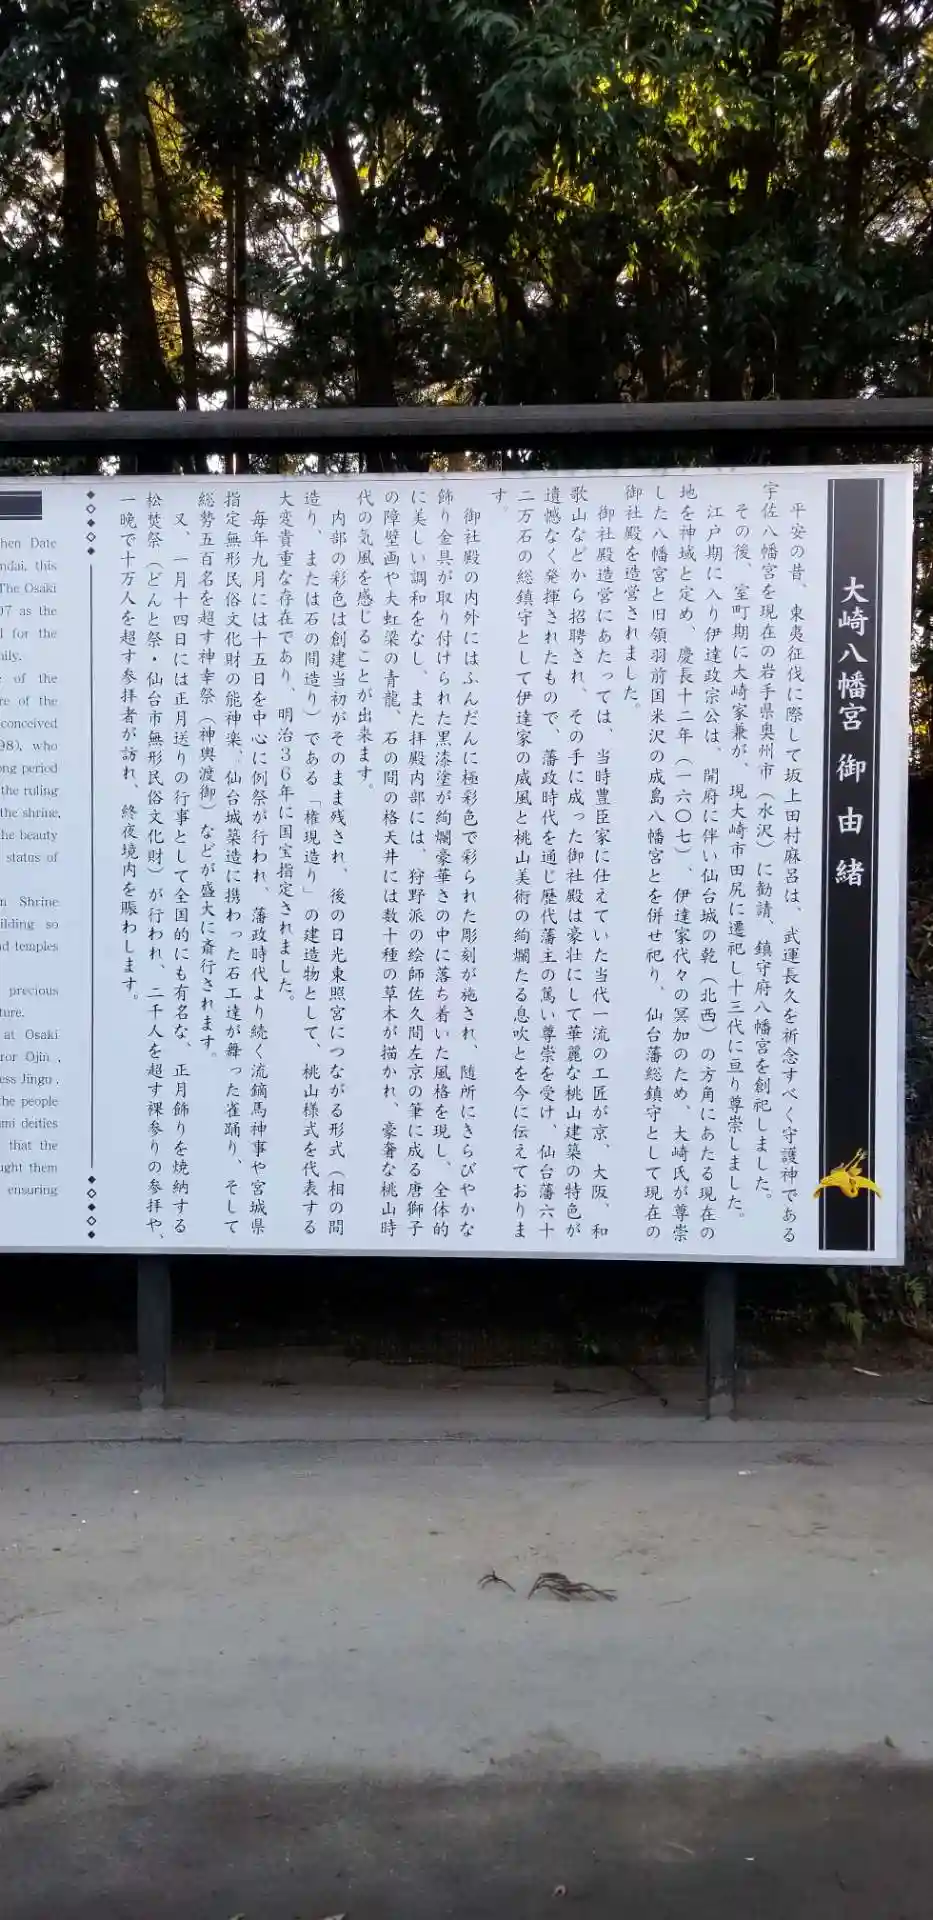 大崎八幡宮 御由緒
平安の昔、東夷征伐に際して坂上田村麻呂は、武運長久を祈念すべく守護神である
宇佐八幡宮を現在の岩手県奥州市（水沢）に勧請、鎮守府八幡宮を創祀しました。
その後、室町期に大崎家兼が、現大崎市田尻に遷祀し十三代に亘り尊崇しました。
江戸期に入り伊達政宗公は、開府に伴い仙台城の乾（北西）の方角にあたる現在の
地を神域と定め、慶長十二年（一六〇七）、伊達家代々の冥加のため、大崎氏が尊崇
した八幡宮と旧領羽前国米沢の成島八幡宮とを併せ祀り、仙台藩総鎮守として現在の
御社殿を造営されました。
御社殿造営にあたっては、当時豊臣家に仕えていた当代一流の工匠が京、大阪、和
歌山などから招聘され、その手に成った御社殿は豪壮にして華麗な桃山建築の特色が
遺憾なく発揮されたもので、藩政時代を通じ歴代藩主の篤い尊崇を受け、仙台藩六十
二万石の総鎮守として伊達家の威風と桃山美術の絢爛たる息吹とを今に伝えておりま
す。
御社殿の内外にはふんだんに極彩色で彩られた彫刻が施され、随所にきらびやかな
飾り金具が取り付けられた黒漆塗が絢爛豪華さの中に落ち着いた風格を現し、全体的
に美しい調和をなし、また拝殿内部には、狩野派の絵師佐久間左京の筆に成る唐獅子
の障壁画や大虹梁の青龍、石の間の格天井には数十種の草木が描かれ、豪奢な桃山時
代の気風を感じることが出来ます。
内部の彩色は創建当初がそのまま残され、後の日光東照宮につながる形式（相の間
造り、または石の間造り）である「権現造り」の建造物として、桃山様式を代表する
大変貴重な存在であり、明治３６年に国宝指定されました。
毎年九月には十五日を中心に例祭が行われ、藩政時代より続く流鏑馬神事や宮城県
指定無形民俗文化財の能神楽、仙台城築造に携わった石工達が舞った雀踊り、そして
総勢五百名を超す神幸祭（神輿渡御）などが盛大に斎行されます。
又、一月十四日には正月送りの行事として全国的にも有名な、正月飾りを焼納する
松焚祭（どんと祭・仙台市無形民俗文化財）が行われ、二千人を超す裸参りの参拝や、
一晩で十万人を超す参拝者が訪れ、終夜境内を賑わします。
hen Date
ndai, this
The Osaki
07 as the
d for the
mily.
e of the
re of the
conceived
98), who
ong period
the ruling
the shrine,
he beauty
status of
n Shrine
ilding so
nd temples
precious
ture.
at Osaki
ror Ojin ,
ess Jingu ,
the people
umi deities
that the
ught them
ensuring